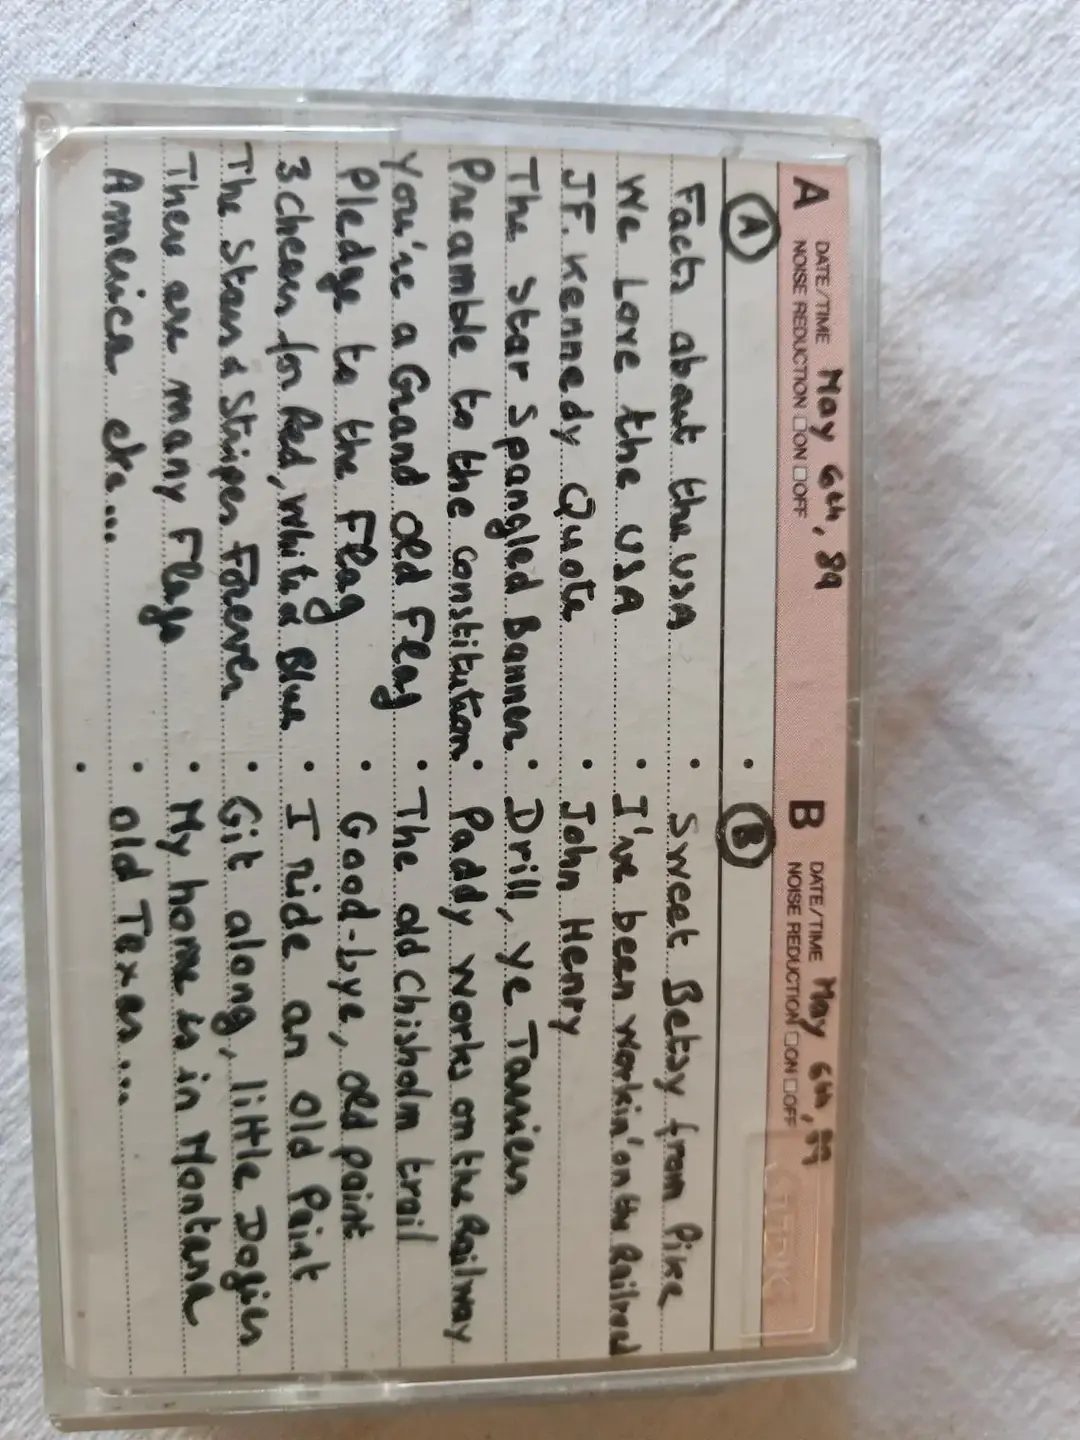 A DATE/TIME May 6th, 89
NOISE REDUCTION □ON □OFF
B DATE/TIME May 6th, 89
NOISE REDUCTION □ON □OFF
TDK
A
Facts about the USA
We Love the USA
JF. Kennedy Quote
The Star Spangled Banner
Preamble to the constitution
You're a Grand old Flag
Pledge to the Flag
3 cheers for Red, White & Blue
The Stars & Stripes Forever
There are many Flags
America etc...
B
Sweet Betsy from Pike
I've been workin' on the Railroad
John Henry
Drill, ye Tarriers
Paddy works on the Railway
The old Chisholm trail
Good-bye, old paint
I ride an old Paint
Git along, little Dogies
My home is in Montana
old Texas...